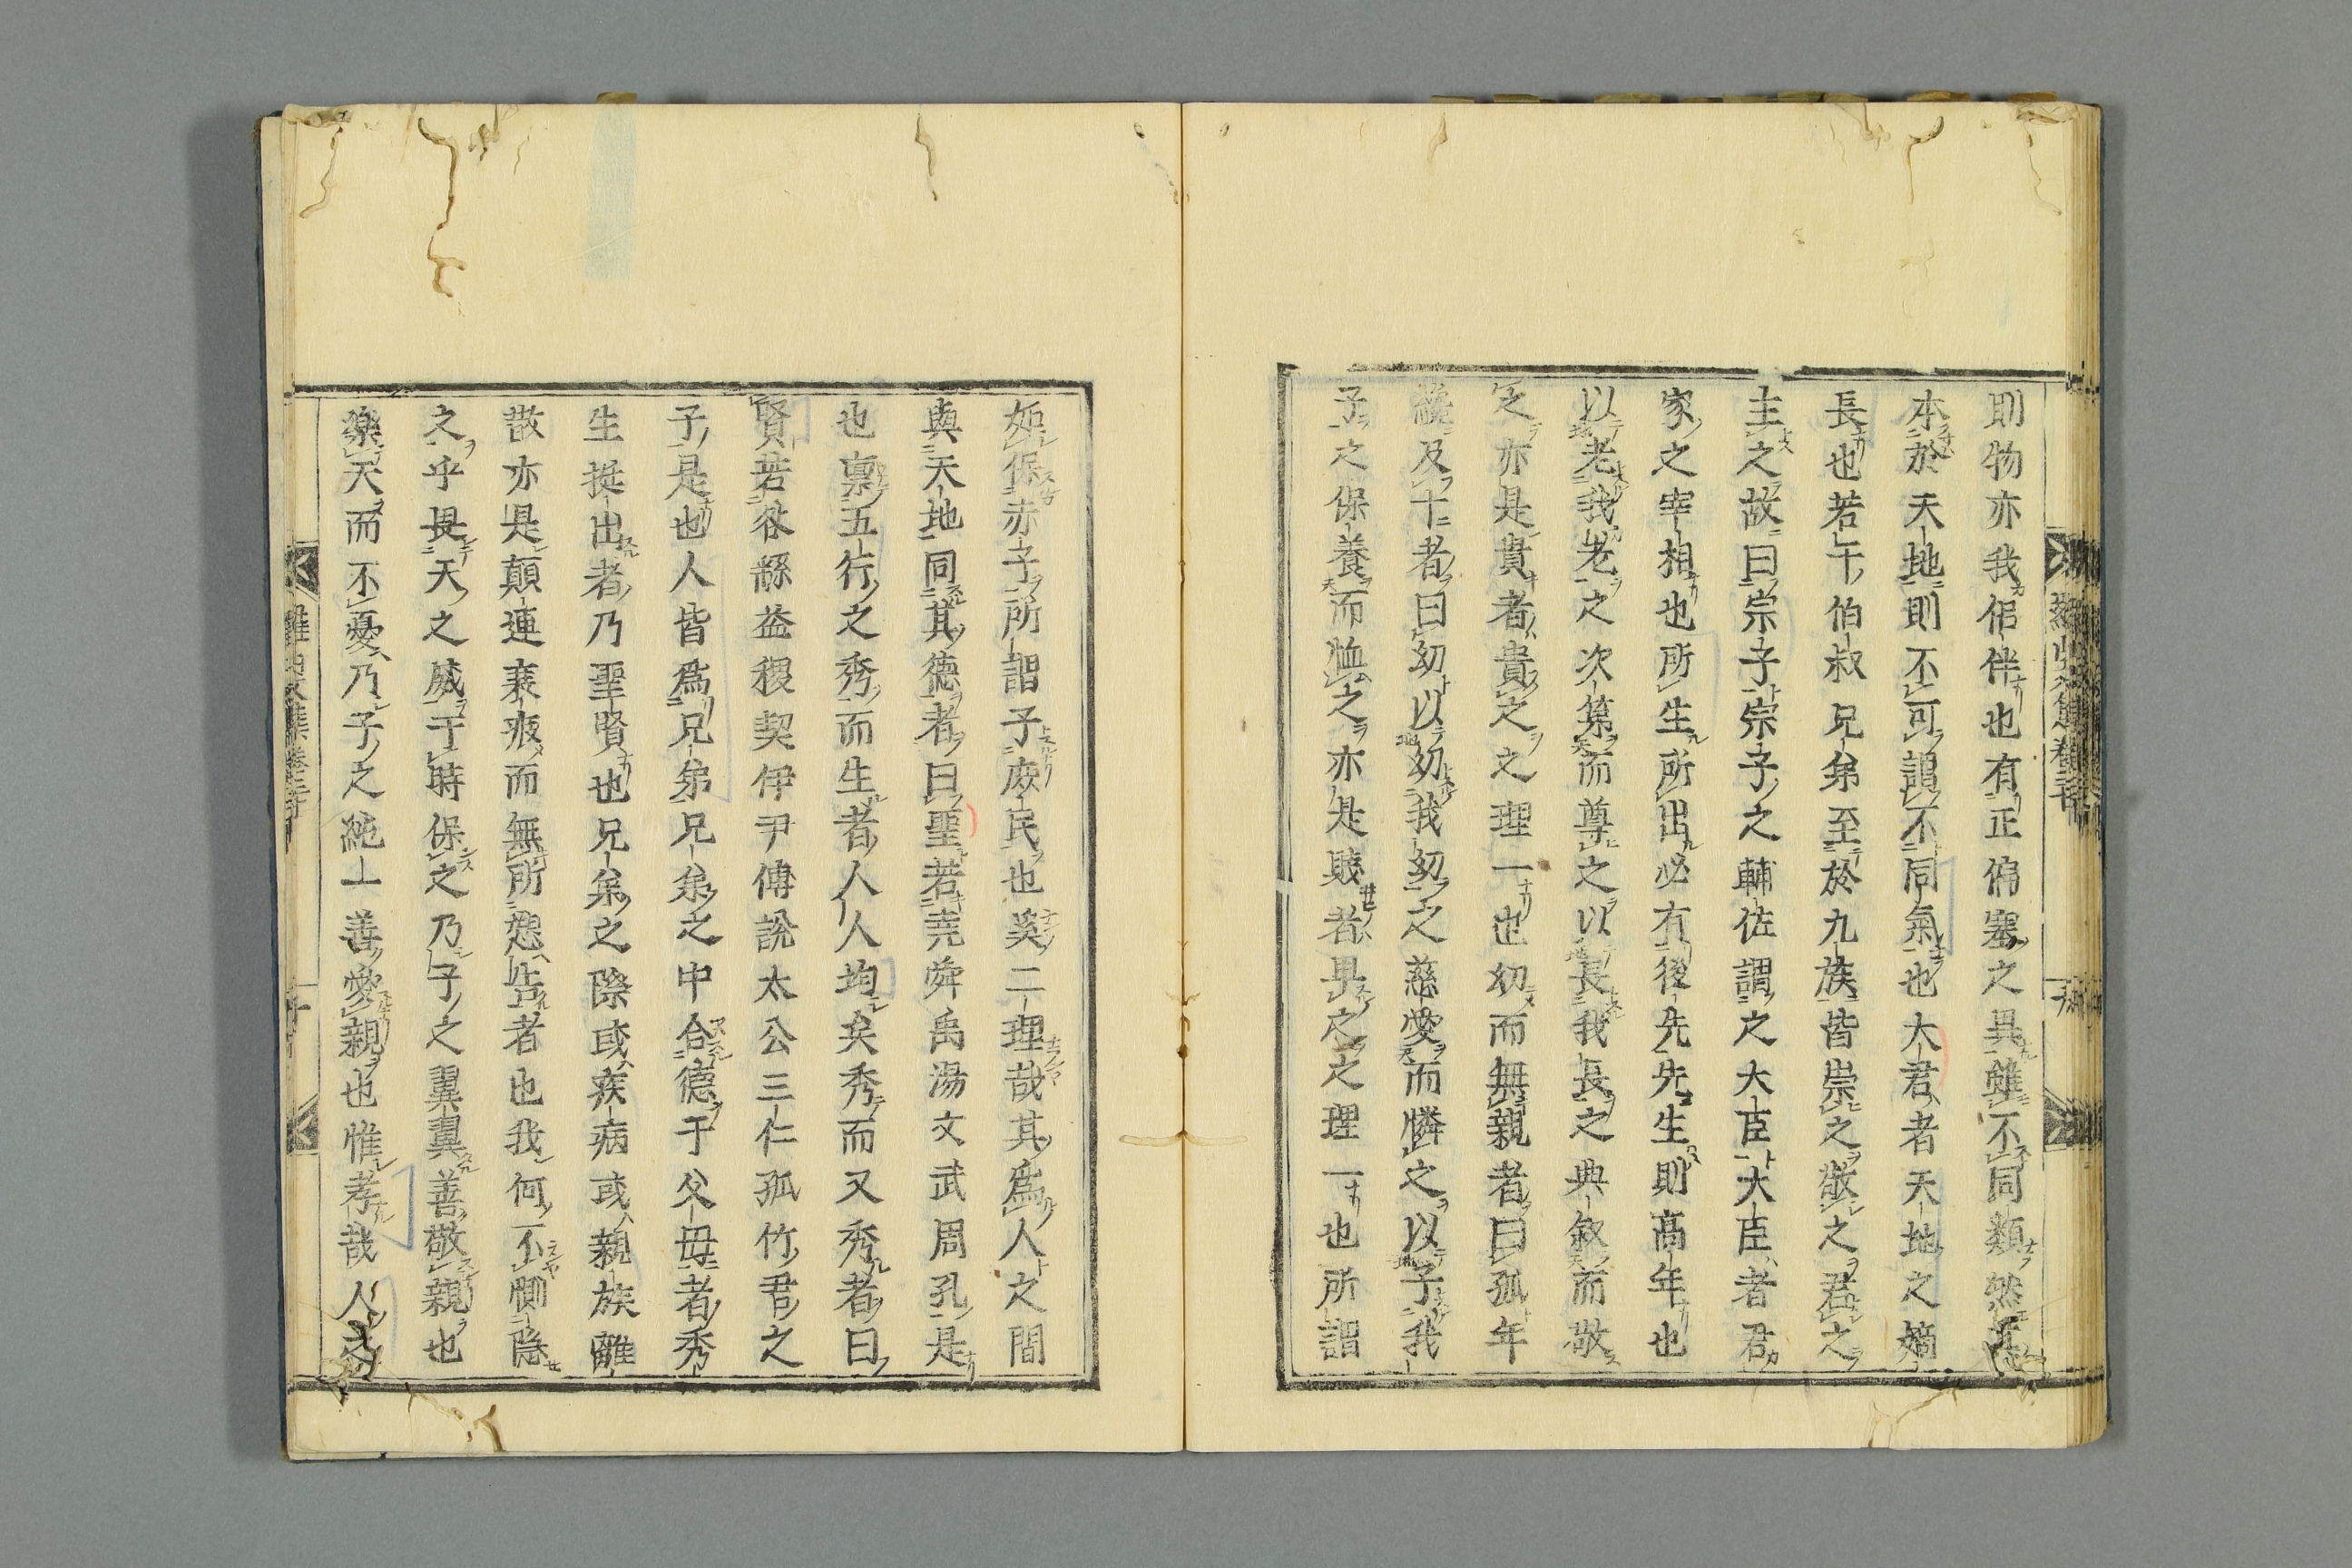 則物亦我侶伴也有正偏塞之異雖不同類然
本於天地則不可謂不同氣也大君者天地之嫡
長也若干伯叔兄弟至於九族皆崇之敬之君之
主之故曰宗子宗子之輔佐謂之大臣大臣者君
家之宰相也所生所出必有後先先生則高年也
以老我老之次第而尊之以長我長之典敘而敬
之亦是貴者貴之之理一也幼而無親者曰孤年
纔及十者曰幼以幼我幼之慈愛而憐之以子我
子之保養而恤之亦是賤者畀之之理一也所謂
如保赤子所謂子庶民也奚二理哉其爲人之間
與天地同其德者曰聖若堯舜禹湯文武周孔是
也稟五行之秀而生者人人均矣秀而又秀者曰
賢若咎繇益稷契伊尹傅說太公三仁孤竹君之
子是也人皆爲兄弟兄弟之中合德于父母者秀
生挺出者乃聖賢也兄弟之際或疾病或親族離
散亦是顛連衰疲而無所愬告者也我何不惻隱
之乎畏天之威于時保之乃子之翼翼善敬親也
樂天而不憂乃子之純一善愛親也惟孝哉人